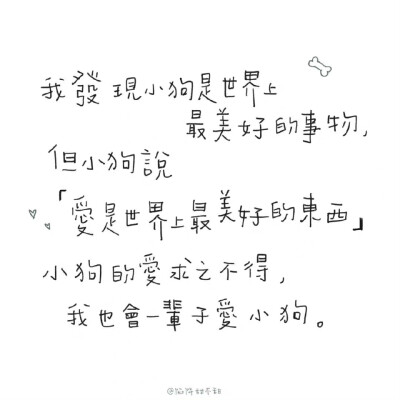 我發現小狗是世界上
最美好的事物,
但小狗說
「愛是世界上最美好的東西」
小狗的愛求之不得,
我也會一輩子愛小狗。